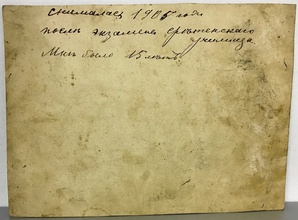 снималась 1905 года
послѣ экзамена Срѣтенскаго
училища
Мнѣ было 15 лѣтъ